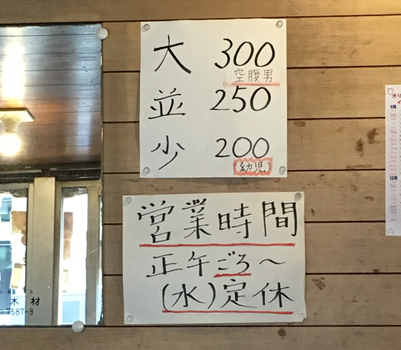 大 300
空腹男
並 250
少 200
幼児
営業時間
正午ごろ〜
(水)定休
木材
7587-9